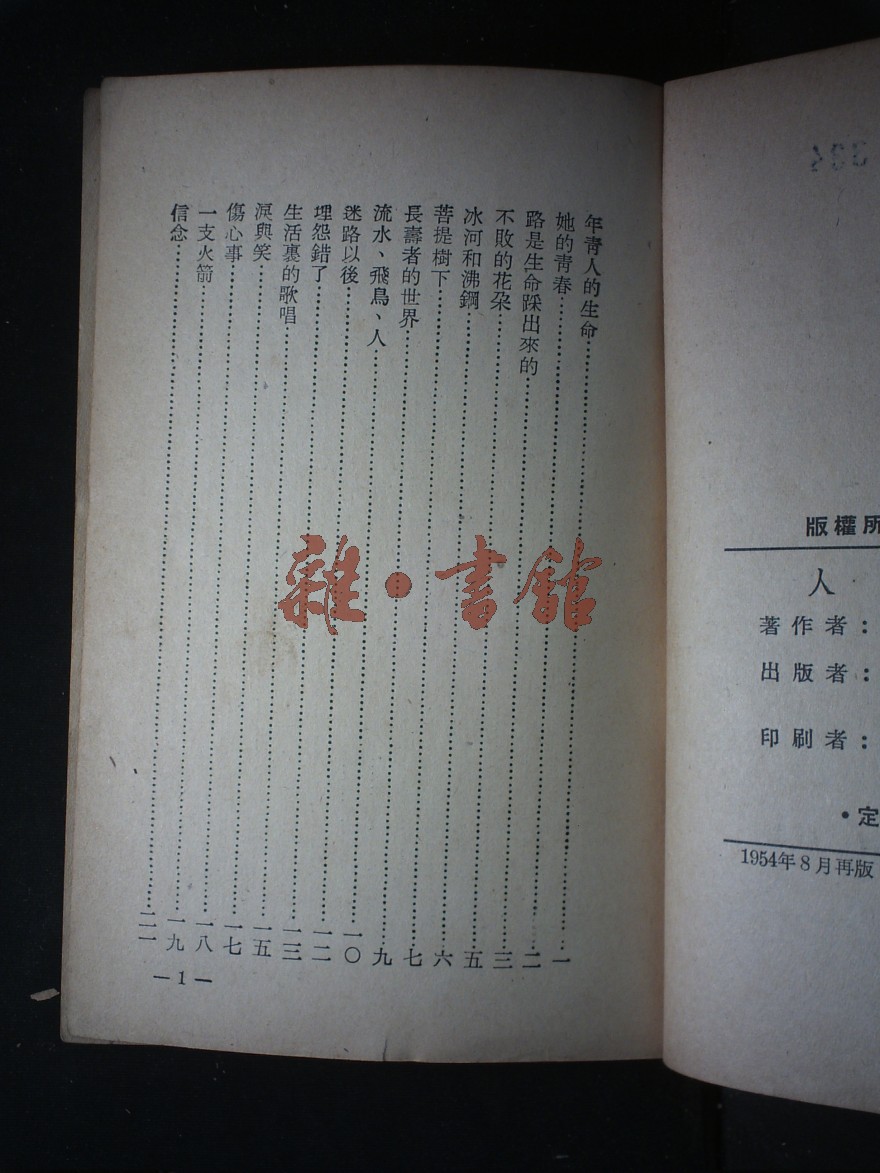 年青人的生命……一
她的青春……二
路是生命踩出來的……三
不敗的花朵……五
冰河和沸鋼……六
菩提樹下……七
長壽者的世界……九
流水、飛鳥、人……一〇
迷路以後……一二
埋怨錯了……一三
生活裏的歌唱……一五
淚與笑……一七
傷心事……一八
一支火箭……一九
信念……二一
—1—
雜·書館
版權所
人
著作者：
出版者：
印刷者：
•定
1954年8月再版